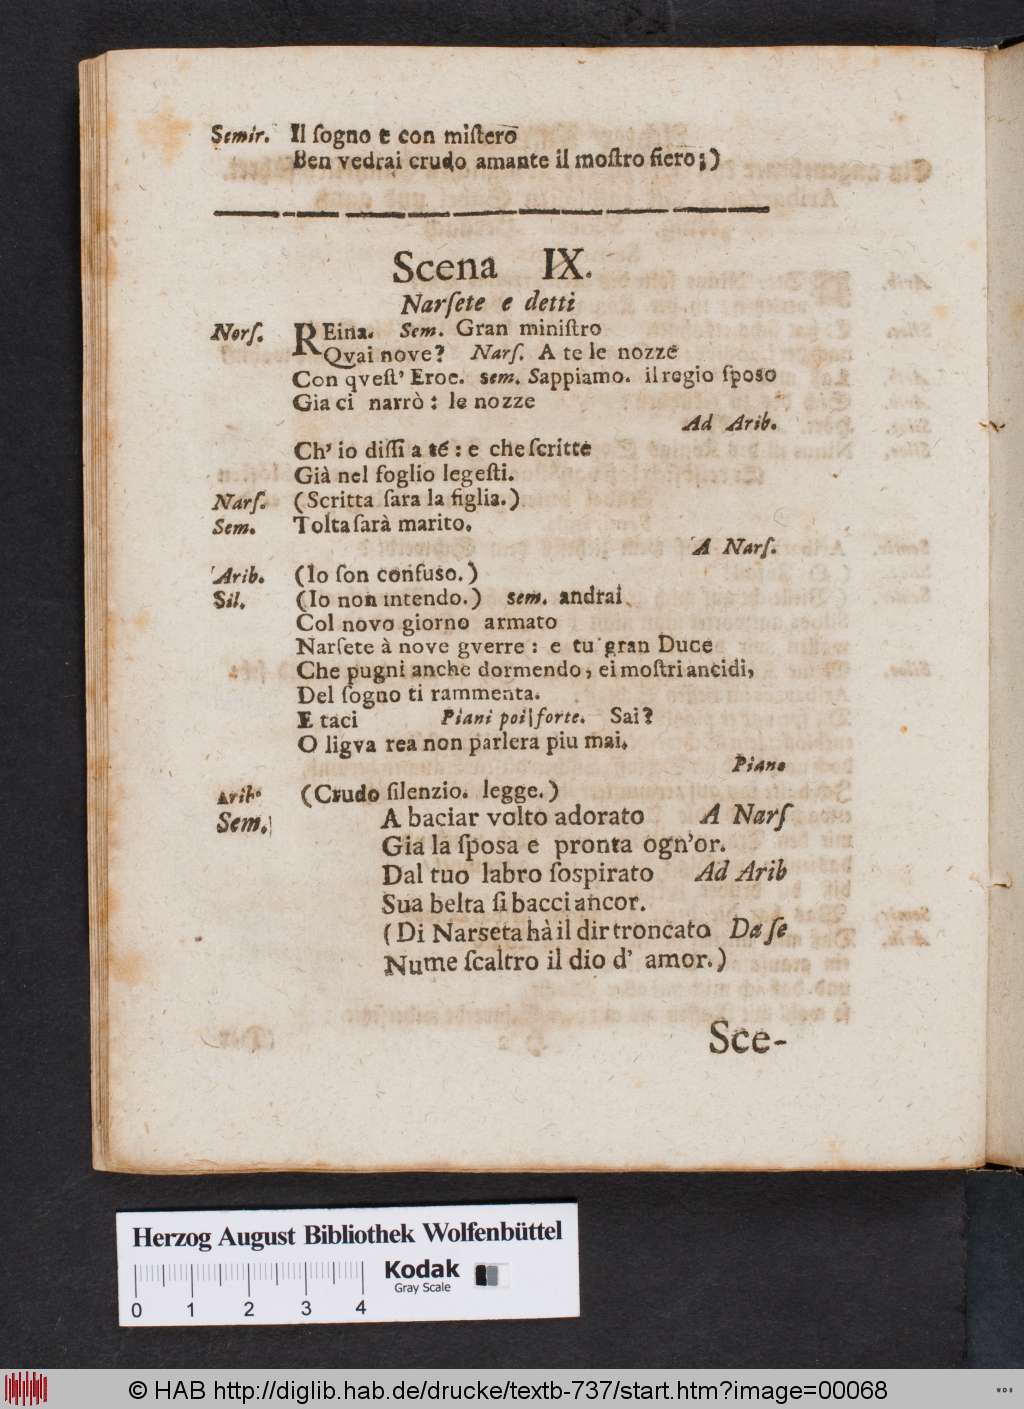 Semir. Il ſogno e con miſtero
Ben vedrai crudo amante il moſtro fiero;)
Scena IX.
Narſete e detti
Norſ. REina. Sem. Gran miniſtro
Qvai nove? Narſ. A te le nozze
Con qveſt' Eroe. sem. Sappiamo. il regio ſposo
Gia ci narrò: le nozze
Ad Arib.
Ch' io diſſi a té: e che ſcritte
Già nel foglio legeſti.
Narſ. (Scritta ſara la figlia.)
Sem. Tolta ſarà marito.
A Narſ.
Arib. (Io ſon confuso.)
Sil. (Io non intendo.) sem. andrai
Col novo giorno armato
Narſete à nove gverre: e tu gran Duce
Che pugni anche dormendo, ei moſtri ancidi,
Del ſogno ti rammenta.
E taci Piani poi forte. Sai?
O ligva rea non parlera piu mai.
Piano
Arib. (Crudo ſilenzio. legge.)
Sem. A baciar volto adorato A Narſ
Gia la ſposa e pronta ogn'or.
Dal tuo labro ſospirato Ad Arib
Sua belta ſi bacci ancor.
(Di Narseta hà il dir troncato Da ſe
Nume ſcaltro il dio d' amor.)
Sce-
Herzog August Bibliothek Wolfenbüttel
Kodak
Gray Scale
0 1 2 3 4
© HAB http://diglib.hab.de/drucke/textb-737/start.htm?image=00068